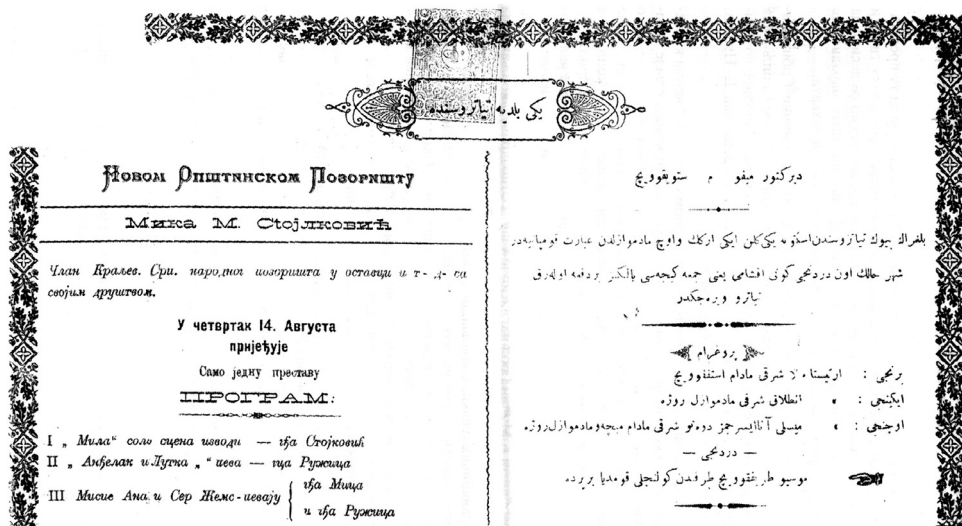 یكی بلدیه تیاتروسنده
Новом Општинском Позоришту
Мика М. Стојлковић
Члан Краљев. Срп. народног позоришта у оставци и са
својим друштвом.
У четвртак 14. Августа
приjеђује
Само једну преставу
ПРОГРАМ:
I „ Мила“ соло сцена изводи — гђа Стојковић
II „ Анђелак и Лутка „ “ пева — гца Ружица
III Мисис Ана и Сер Жемс - певају { гђа Мица
и гђа Ружица
دیركتور میقو م ستویقوویچ
بلغراد بیوك تیاتروسندن یكی كلن ایكی اركك واوچ مادموازلدن عبارت قومپانیه در
شهر حالك اون دردنجی كونی اقشامی یعنی جمعه كیجه‌سی یالكز بردفعه اوله‌رق
تیاترو ویره‌جكدر
پروغرام
برنجی : شرقی مادام
ایكینجی : » شرقی مادموازل روزه
اوچنجی : » شرقی مادام میچه ومادموازل روزه
— دردنجی —
موسیو طرفندن كولنجلی قومدیا بر پرده